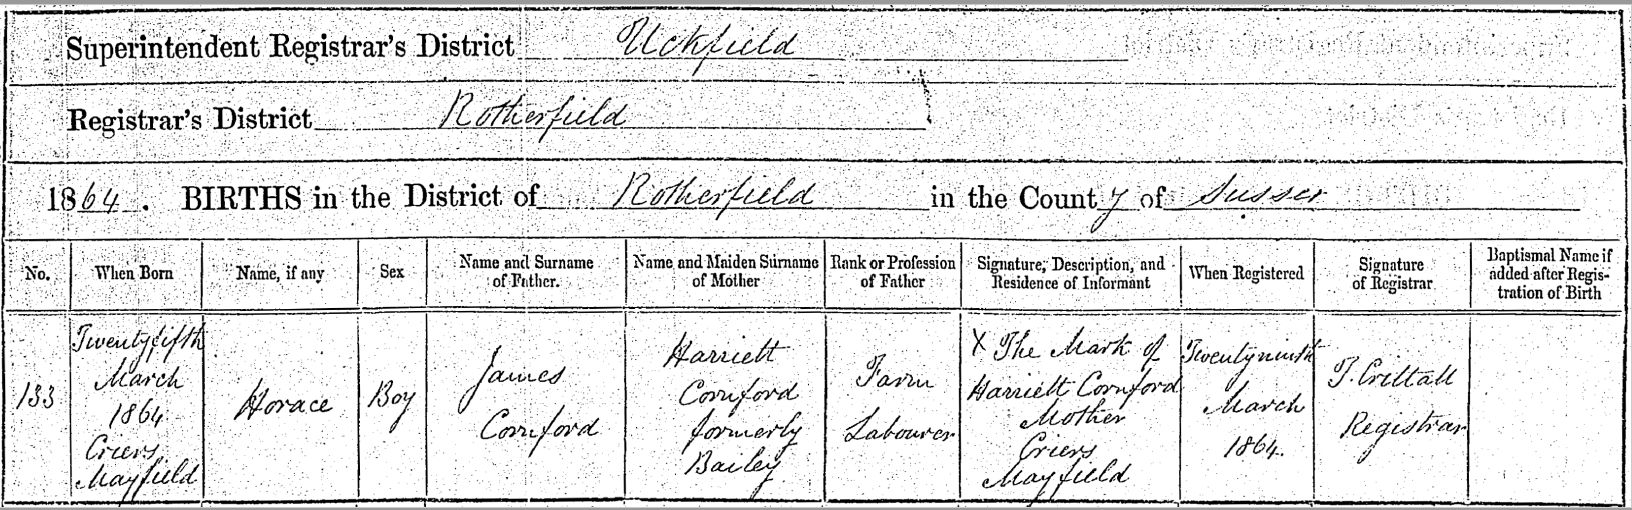 Superintendent Registrar's District Uckfield
Registrar's District Rotherfield
1864. BIRTHS in the District of Rotherfield in the County of Sussex
No.
When Born
Name, if any
Sex
Name and Surname
of Father.
Name and Maiden Surname
of Mother
Rank or Profession
of Father
Signature, Description, and
Residence of Informant
When Registered
Signature
of Registrar
Baptismal Name if
added after Regis-
tration of Birth
133
Twentyfifth
March
1864
Criers
Mayfield
Horace
Boy
James
Cornford
Harriett
Cornford
formerly
Bailey
Farm
Labourer
X The Mark of
Harriett Cornford
Mother
Criers
Mayfield
Twentyninth
March
1864.
T. Crittall
Registrar